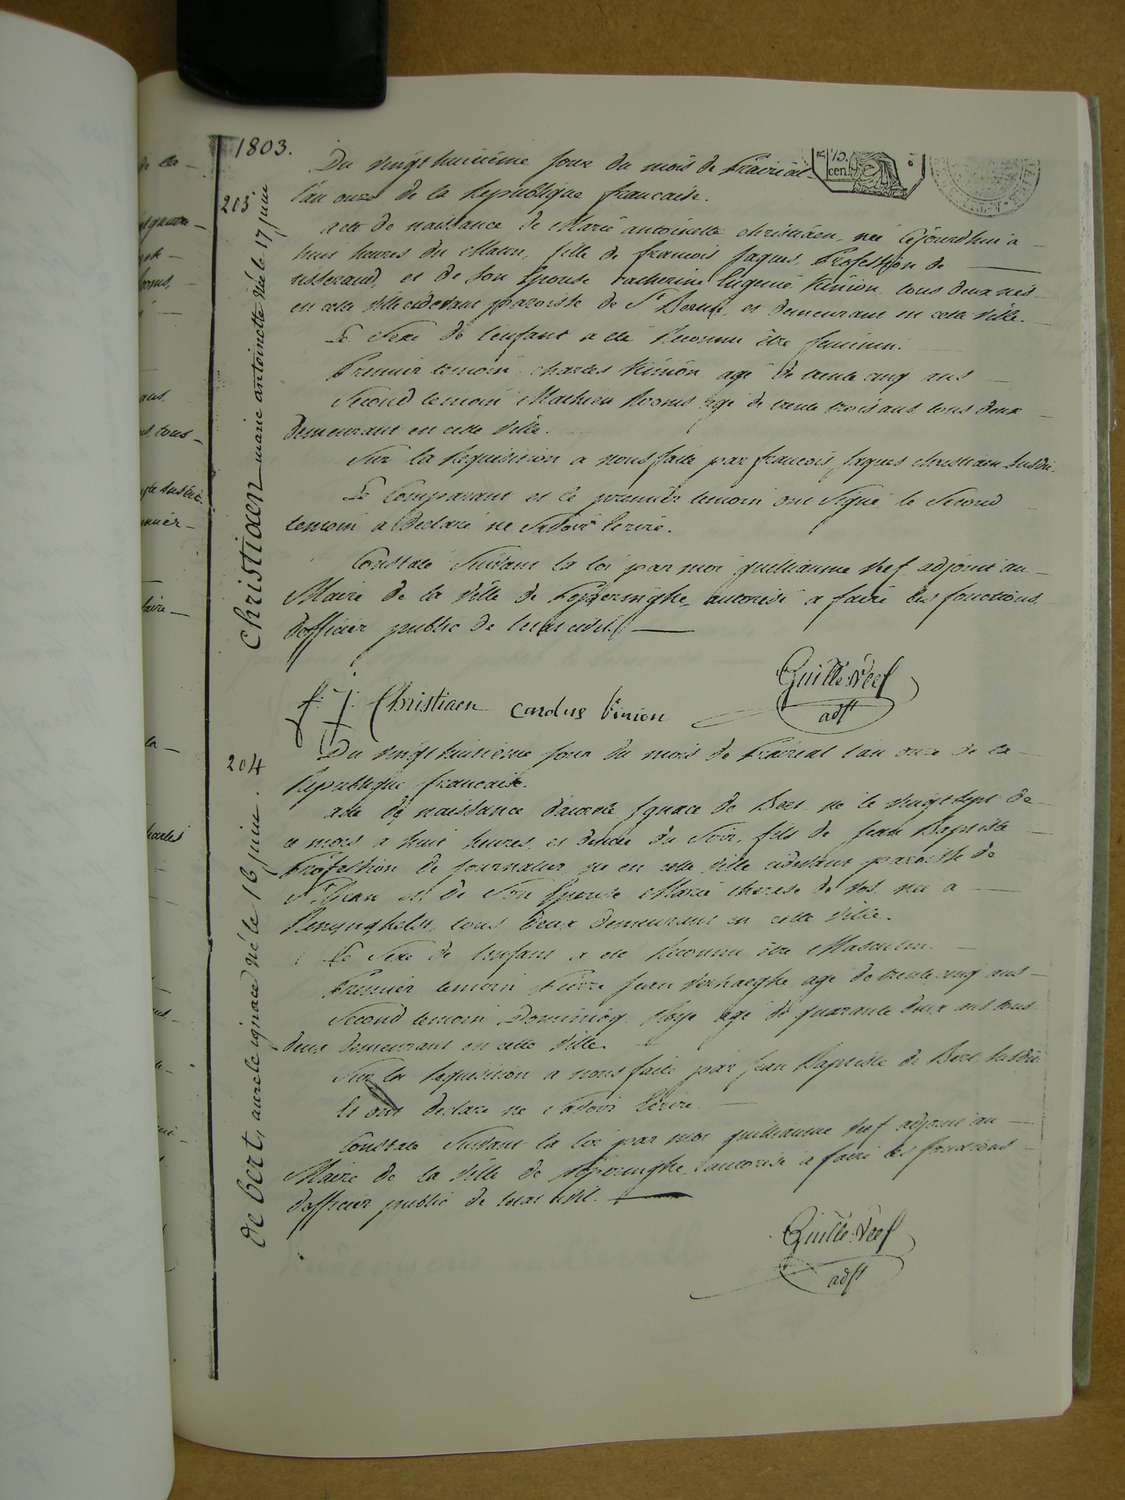 1803.
203
christiaen marie antoinette né le 17 juin
Du vingt huitiéme jour du mois de Prairial
l'an onze de la Republique francaise.
acte de naissance de Marie antoinette christiaen née cejourdhui a
huit heures du Matin, fille de francois Jaques, Profession de
tisserand, et de son Epouse Catherine Eugenie Kinion tous deux nés
en cette ville cidevant paroisse de St Bertin, et demeurant en cette ville.
Le Sexe de l'enfant a eté Reconnu être feminin.
Premier temoin charles Kinion agé de trente cinq ans
Second temoin Mathieu agé de trente trois ans tous deux
demeurant en cette ville.
Sur la Requisition a nous faite par francois Jaques christiaen susdit
Le Comparant et le premier temoin ont signé le Second
temoin a Declaré ne Savoir Ecrire.
Constaté Suivant la loi par moi guilliaume Veef adjoint au
Maire de la Ville de Poperinghe autorisé a faire les fonctions
d'officier public de l'etat civil
f: J: Christiaen carolus kinion
Guille Veef
adjt
204
de bert, aurele ignace né le 16 juin.
Du vingt huitiéme jour du mois de Prairial l'an onze de la
Republique francaise.
acte de naissance Ignace de Bert né le vingt sept de
ce mois a huit heures et demie du Soir, fils de Jean Baptiste
Profession de journalier né en cette ville cidevant paroisse de
St Jean et de Son Epouse Marie therese de Vos née a
Renynghelst, tous deux demeurant en cette Ville.
Le Sexe de l'enfant a eté Reconnu être Masculin.
Premier temoin Pierre Jean Verhaeghe agé de trente cinq ans
Second temoin Dominicq agé de quarante deux ans tous
deux demeurant en cette Ville.
Sur la Requisition a nous faite par Jean Baptiste de Bert susdit
Et ont declaré ne Savoir Ecrire.
Constaté Suivant la loi par moi guilliaume Veef adjoint au
Maire de la Ville de Poperinghe autorisé a faire les fonctions
d'officier public de l'etat civil.
Guille Veef
adjt